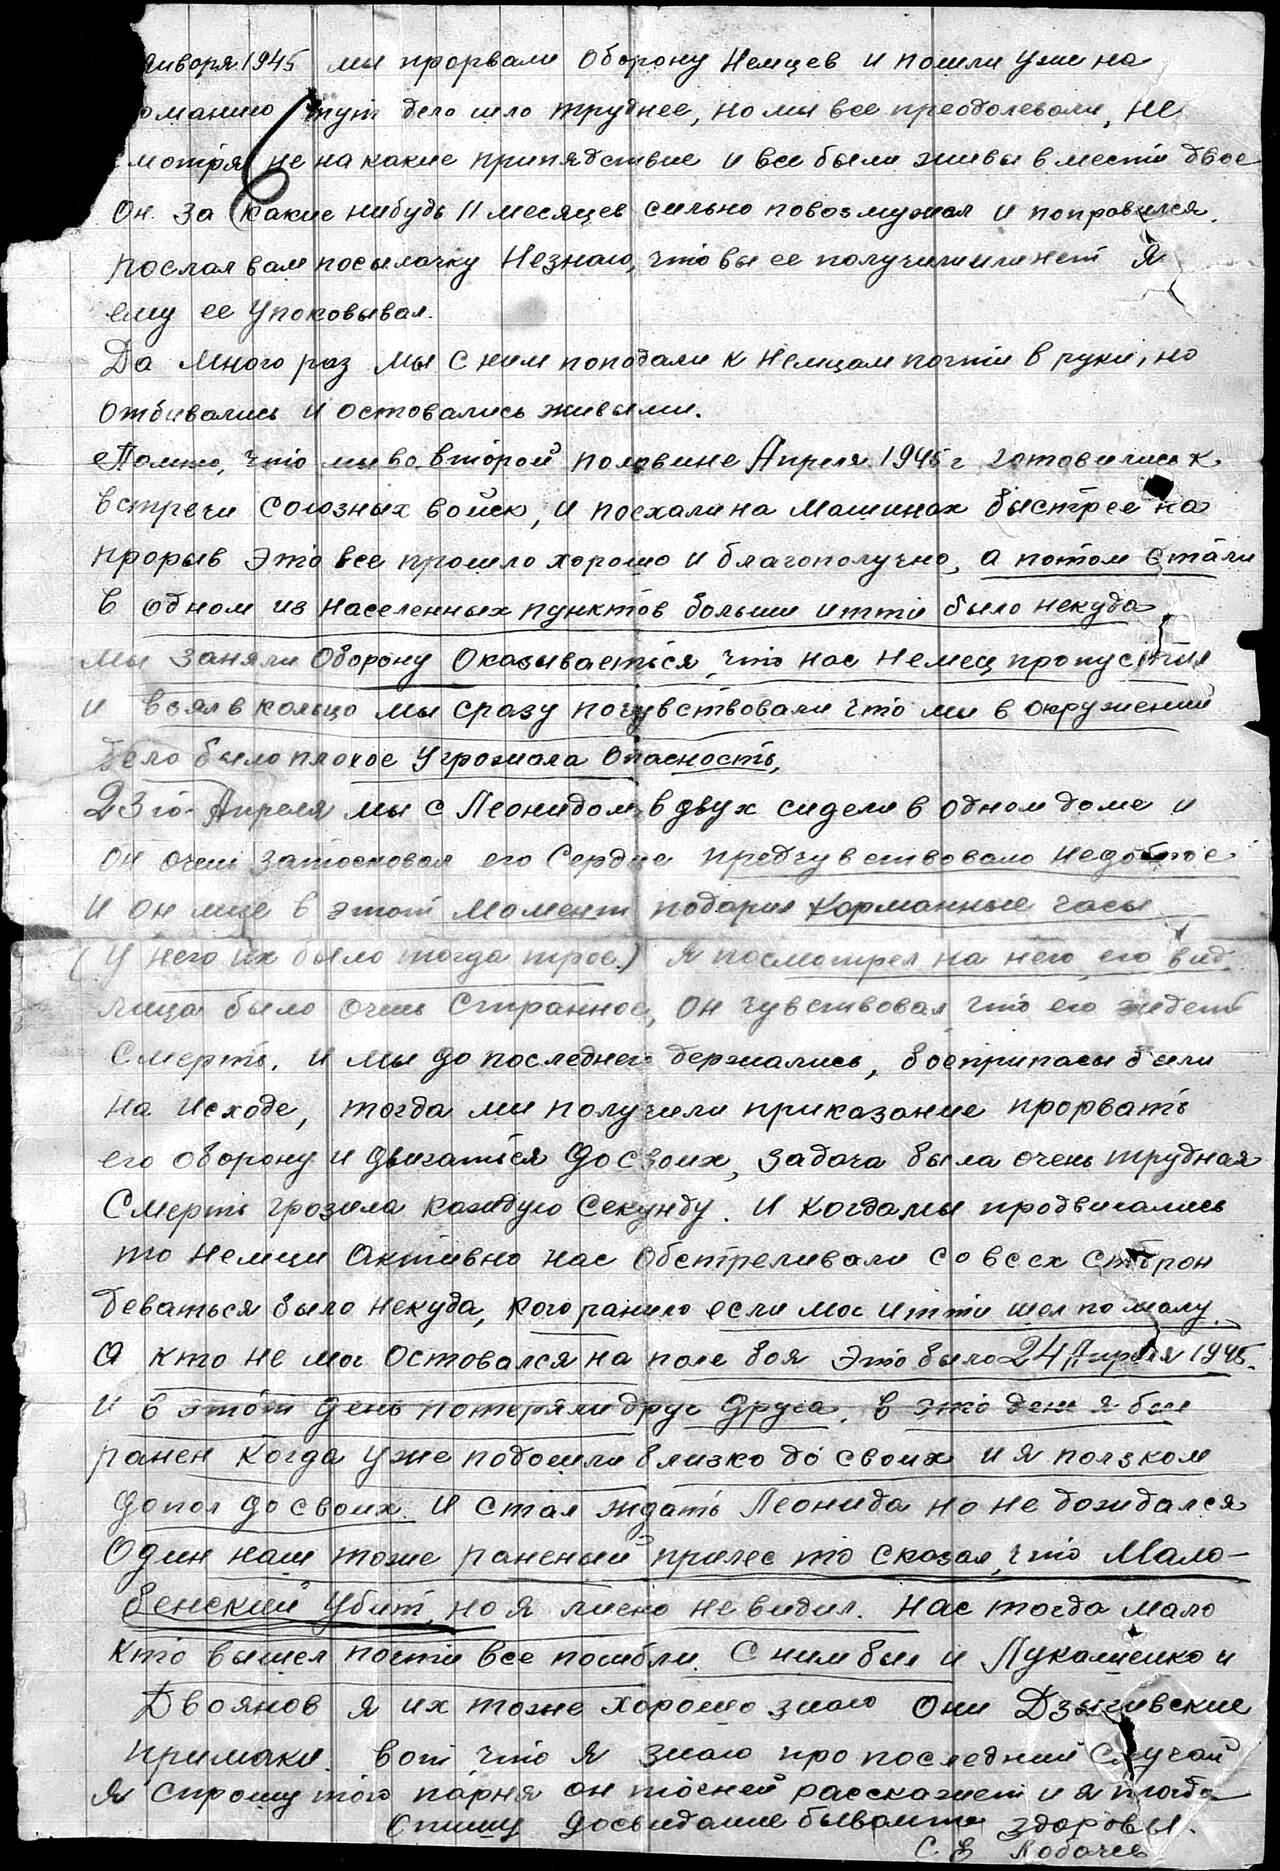 января 1945 мы прорвали Оборону Немцев и пошли уже на
оманию тут дело шло труднее, но мы все преодолевали, не
мотря не на какие припядствие и все были живы вместе двое
Он за какие нибудь 11 месяцев сильно повозмужал и поправился.
послал вам посылочку Незнаю, что вы ее получили или нет Я
ему ее упоковывал.
Да много раз мы с ним поподали к Немцам почти в руки, но
отбивались и остовались живыми.
Помню, что мы во второй половине Апреля 1945 г готовились к
встречи Союзных войск, и поехали на Машинах быстрее на
прорыв это все прошло хорошо и благополучно, а потом стали
в одном из населенных пунктов больши итти было некуда
мы заняли Оборону Оказывается, что нас Немец пропустил
и взял в кольцо мы сразу почувствовали что ми в окружении
дело было плохое Угрожала Опасность,
23го Апреля мы с Леонидом в двух сидели в одном доме и
он очень затосковал его Сердце предчувствовало недоброе
И он мне в этот момент подарил карманные часы
(У него их было тогда трое.) Я посмотрел на него его вид
лица было очень Странное, он чувствовал что его ждет
Смерть. И мы до последнего держались, боеприпасы были
на исходе, тогда ми получили приказание прорвать
его оборону и двигаться до своих, задача была очень трудная
Смерть грозила каждую секунду. И когда мы продвигались
то немци Активно нас Обстреливали со всех сторон
деваться было некуда, кого ранило если мог итти шол помалу.
А кто не мог Оставался на поле боя это было 24 Апреля 1945.
И в этот день потеряли друг друга. в это ден я был
ранен когда уже подошли близко до своих и я ползком
дополз до своих. И стал ждать Леонида но не дождался
Один наш тоже раненый прилез то сказал, что Мало-
бенский убит, но я лично не видил. Нас тогда мало
кто вышел почти все погибли. С ним был и Лукашенко и
Двоянов я их тоже хорошо знаю Они Дзыгивские
примаки. вот что я знаю про последний Случай
Я спрошу того парня он точней расскажет и я тогда
Опишу досвидание бывайте здоровы.
С. Е Лобачев